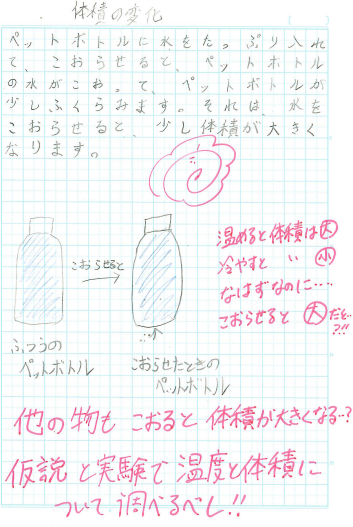 体積の変化
ペットボトルに水をたっぷり入れ
て、こおらせると、ペットボトル
の水がこおって、ペットボトルが
少しふくらみます。それは、水を
こおらせると、少し体積が大きく
なります。
温めると体積は大
冷やすと 〃 小
なはずなのに…
こおらせると 大だと…?!!
こおらせると
ふつうの
ペットボトル
こおらせたときの
ペットボトル
他の物も こおると 体積が大きくなる…?
仮説と実験で 温度と体積に
ついて 調べるべし!!